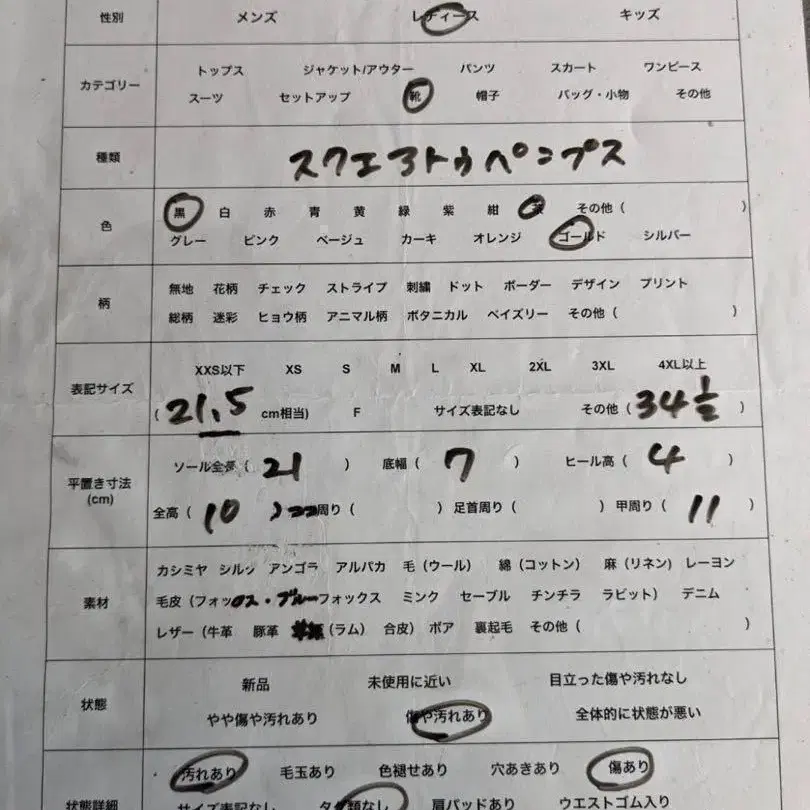 性別 メンズ レディース キッズ
カテゴリー
トップス ジャケット/アウター パンツ スカート ワンピース
スーツ セットアップ 靴 帽子 バッグ・小物 その他
種類 スクエアトゥペンプス
色
黒 白 赤 青 黄 緑 紫 紺 その他 ( )
グレー ピンク ベージュ カーキ オレンジ ゴールド シルバー
柄
無地 花柄 チェック ストライプ 刺繍 ドット ボーダー デザイン プリント
総柄 迷彩 ヒョウ柄 アニマル柄 ボタニカル ペイズリー その他 ( )
表記サイズ
XXS以下 XS S M L XL 2XL 3XL 4XL以上
( 21.5 cm相当) F サイズ表記なし その他 ( 34 1/2 )
平置き寸法
(cm)
ソール全長 ( 21 ) 底幅 ( 7 ) ヒール高 ( 4 )
全高 ( 10 ) 周り ( ) 足首周り ( ) 甲周り ( 11 )
素材
カシミヤ シルク アンゴラ アルパカ 毛 (ウール) 綿 (コットン) 麻 (リネン) レーヨン
毛皮 (フォックス・ブルーフォックス ミンク セーブル チンチラ ラビット) デニム
レザー (牛革 豚革 (ラム) 合皮) ボア 裏起毛 その他 ( )
状態
新品 未使用に近い 目立った傷や汚れなし
やや傷や汚れあり 傷や汚れあり 全体的に状態が悪い
状態詳細
汚れあり 毛玉あり 色褪せあり 穴あきあり 傷あり
サイズ表記なし タグ類なし 肩パッドあり ウエストゴム入り